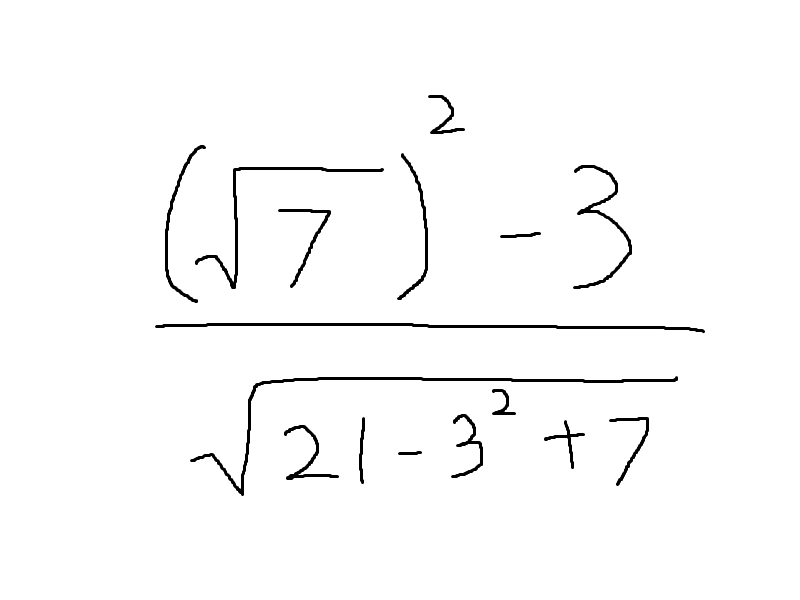 (√7)² - 3
√21 - 3² + 7